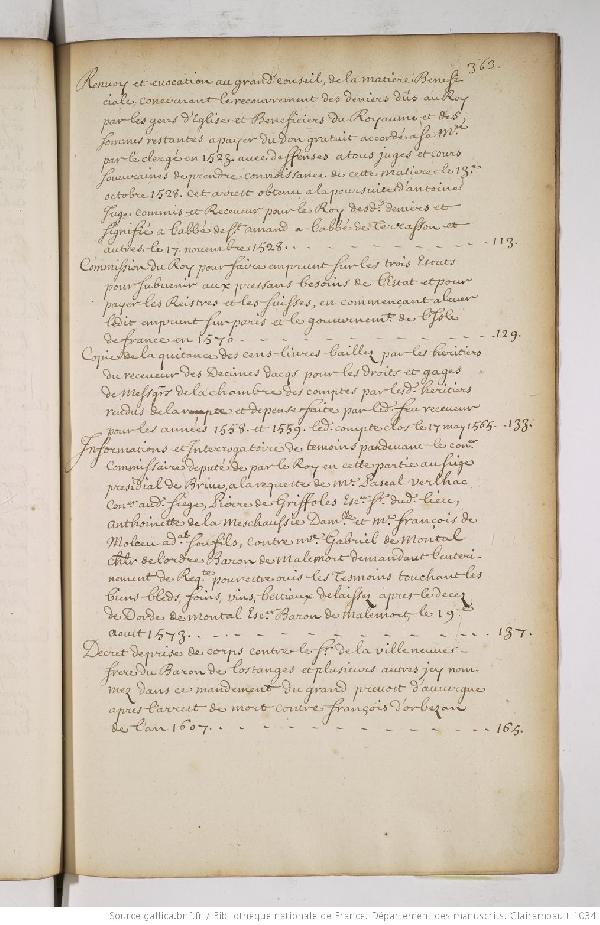 363.
Renvoy et evocation au grand conseil, de la matiere Benefi-
ciale, concernant le recouvrement des deniers dûs au Roy
par les gens d'Eglise et Beneficiers du Royaume, et des
sommes restantes a payer du don gratuit accordé a sa Mté
par le clergé en 1523. avec deffenses a tous juges et cours
souveraines de prendre connoissance de cette matiere le 13.
octobre 1528. cet arrest obtenu a la poursuite d'antoine
Juge commis et Receveur pour le Roy desd. deniers et
signifié a l'abbé de St. amand a l'abbé de Terrasson et
autres le 17. novembre 1528. . - - - - - - 113.
Commission du Roy pour faire emprunt sur les trois Estats
pour subvenir aux pressans besoins de l'Estat et pour
payer les Reistres et les suisses, en commençant a lever
ledit emprunt sur paris et le gouvernemt. de l'Isle
de france en 1570 - - - - - - - - 129.
Copie de la quitance des cens livres baillez par les heritiers
du receveur des Decimes dacqs pour les droits et gages
de Messgrs de la chambre des comptes par lesd. heritiers
rendus de la recepte et depense faite par led. feu receveur
pour les années 1558. et 1559. led. compte clos le 17 may 1565. . 133.
Informations et Interrogatoire de temoins pardevant le conr.
Commissaire deputé de par le Roy en cette partie au siege
presidial de Brive, a la requette de Mr. Pascal Verlhac
Conr. aud. siege, Pierre de Griffoles Escr. Sr. dud. lieu,
Anthoinette de la Meschaussée Damlle et Mr. François de
Molceu adat. son fils, contre Mre. Gabriel de Montal
chlr de l'ordre Baron de Malemort demandant l'enteri-
nement de Reqte. pour estre ouis les Tesmoins touchant les
biens bleds, foins, vins, bestiaux delaissez apres le decez
de Dorde de montal Escr. Baron de Malemort, le 19.
aoust 1573. . - - - - - - - - - 137.
Decret de prise de corps contre le Sr. de la villeneuve
frere du Baron de lostanges et plusieurs autres jcy nom-
mez dans ce mandement du grand prevost d'auvergne
apres l'arrest de mort contre françois d'orbezan
de l'an 1607. . - - - - - - - - 165.
Source gallica.bnf.fr / Bibliothèque nationale de France. Département des manuscrits. Clairambault 1034